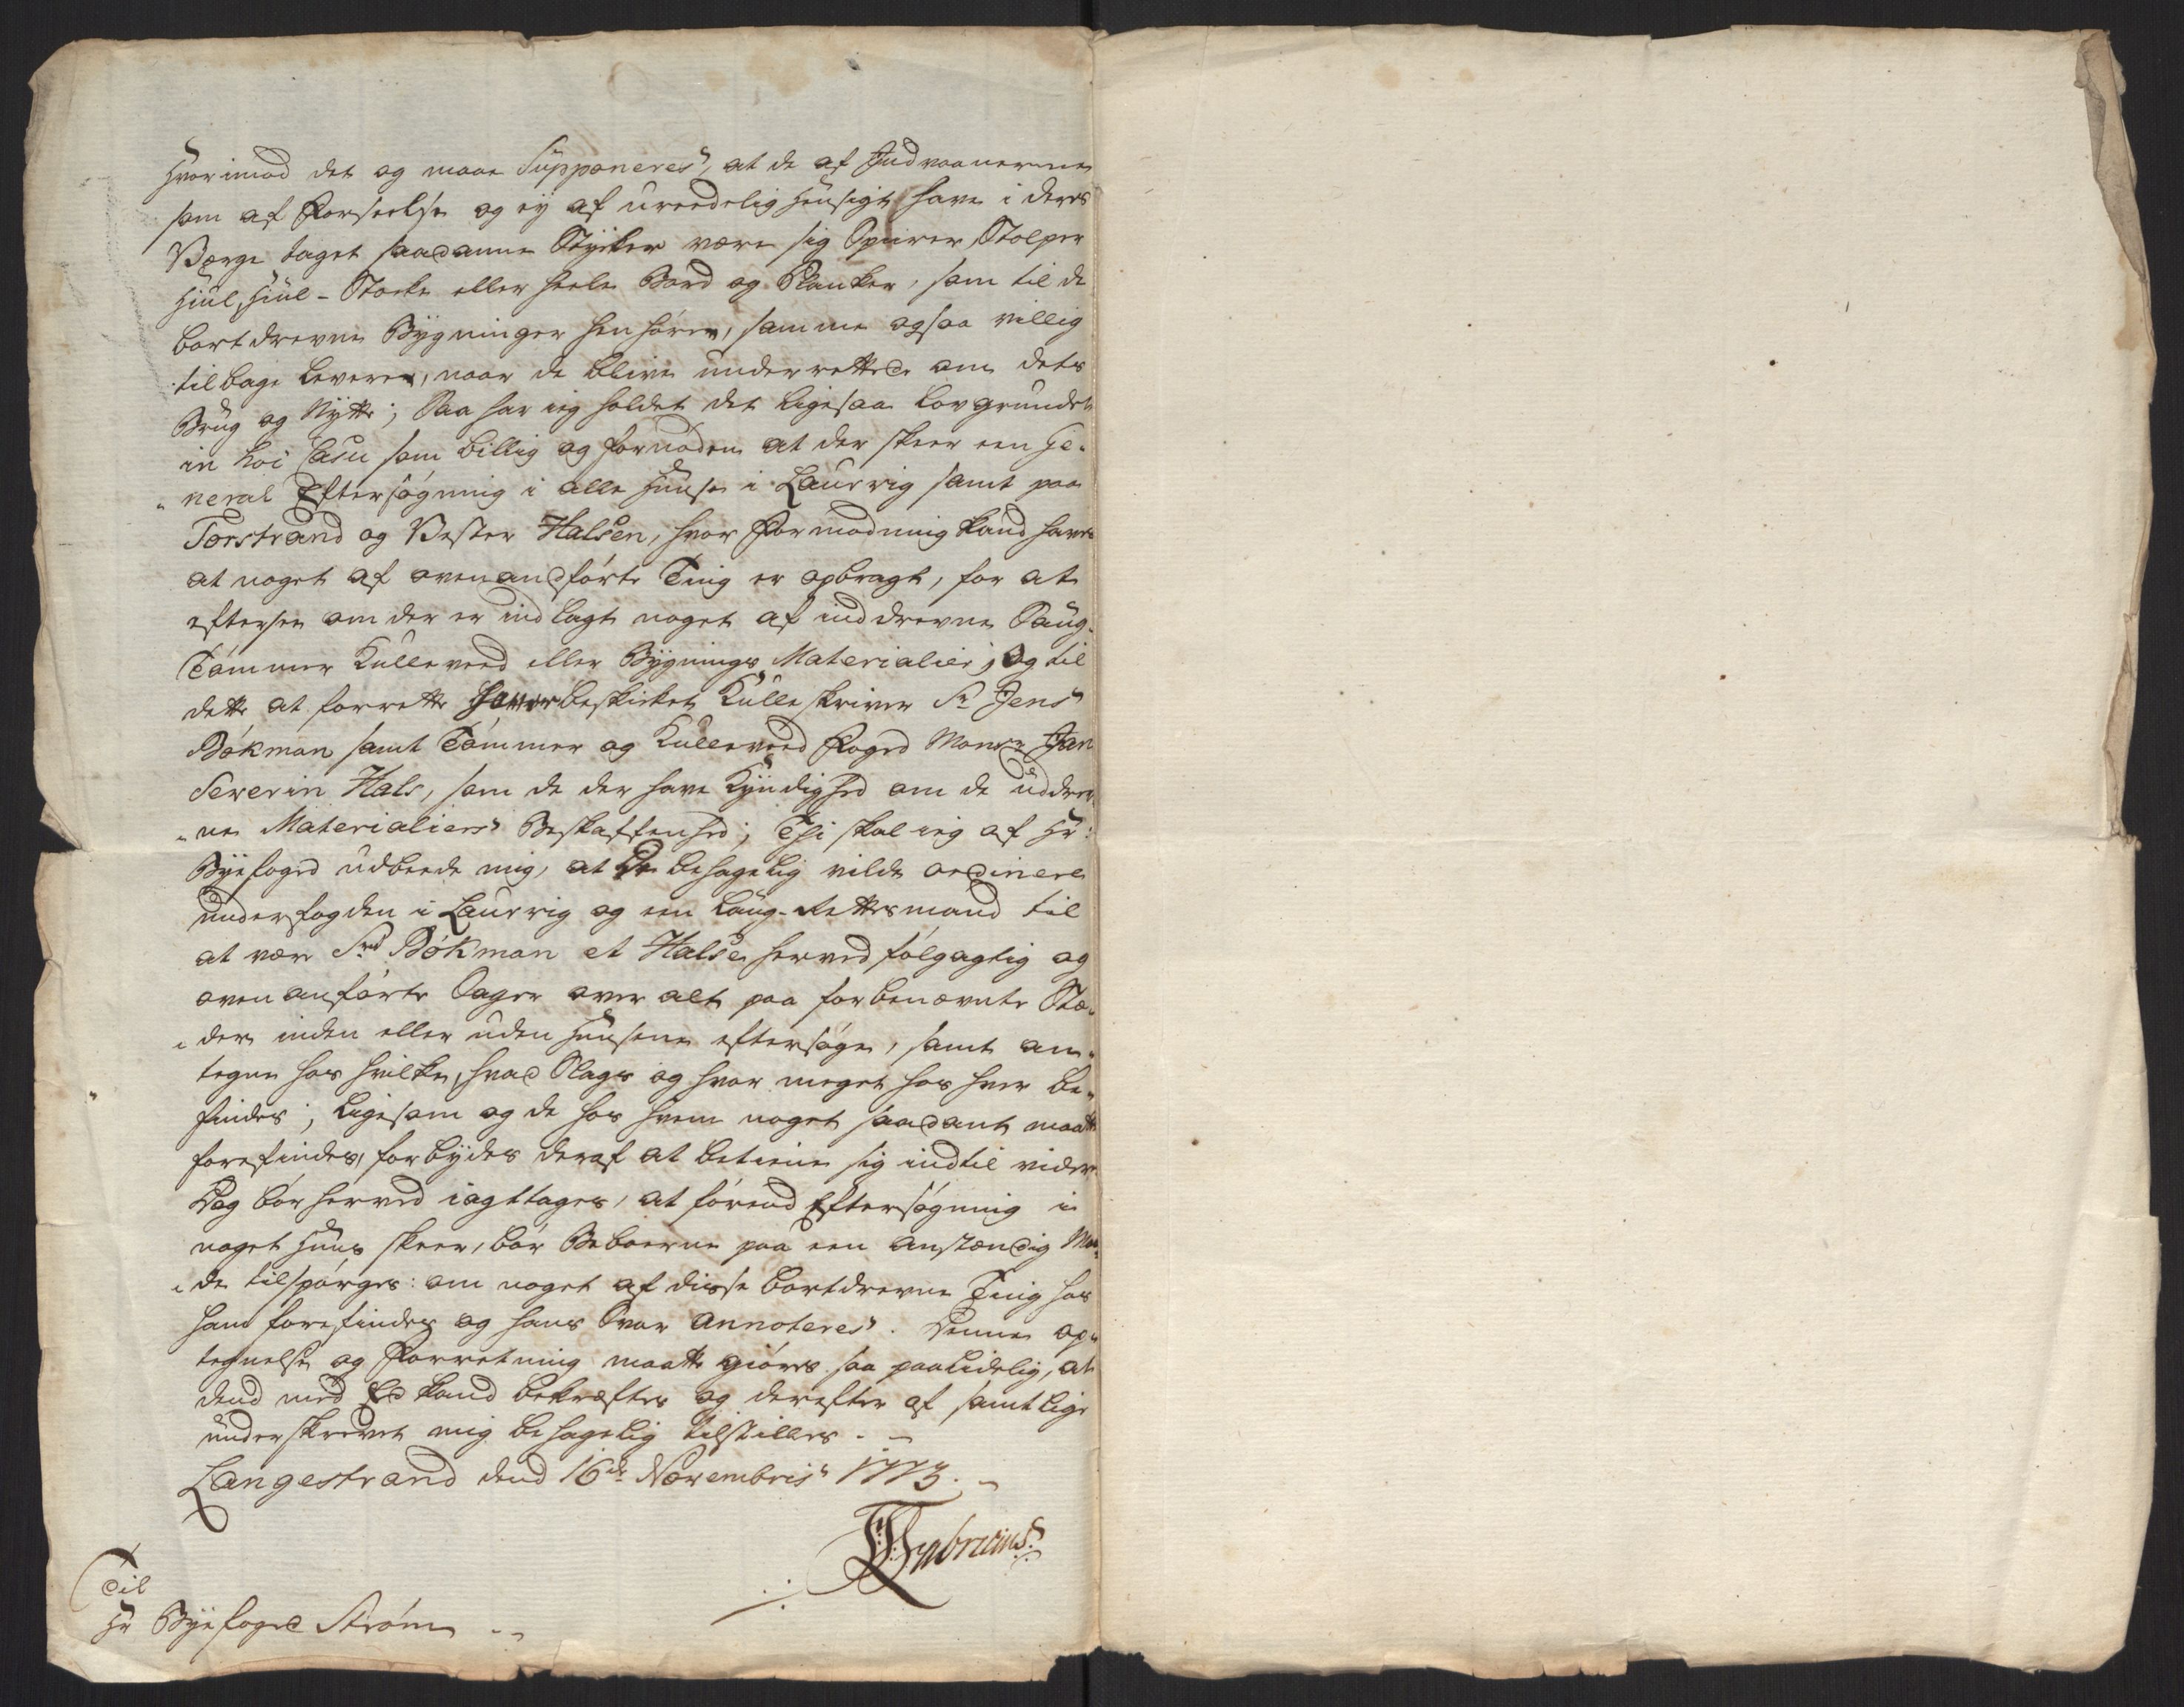 Hvorimod det og maae Supponeres, at de af Indvaanerne
som af Forseelse og ey af ureedelig Hensigt have i deres
Værge taget saadanne Stycker være sig Spirer, Stolper
Hiul, Hiul-Stocke eller heele Bord og Planker, som til de
bortdrevne Bygninger henhører, samme ogsaa villig
tilbage leverer, naar de blive underrettede om dets
Brug og Nytte; Saa har ieg holdet det ligesaa lovgrundet
in hoc Casu som billig og fornøden at der skeer een Ge-
neral Eftersøgning i alle Huuse i Laurvig samt paa
Torstrand og Vester Halsen, hvor Formodning kand haves
at noget af ovenandførte Ting er opbragt, for at
efterser om der er indlagt noget af inddrevne Saug-
Tømmer Kulleveed eller Bygnings Materialier; Og til
dette at forrette haver beskicket Kulleskriver Sr Jens
Bökman samt Tømmer og Kulleveed Foged Monsr Jan
Severin Hals, som de der have Kyndighed om de uddrev-
ne Materialiers Beskaffenhed; Thi skal ieg af Hr:
Byefoged udbeede mig, at De behagelig vilde ordinere
underfogden i Laurvig og een Laug-Rettesmand til
at være Srs Bökman et Halse herved følgagtig og
ovenanførte Sager over alt paa forbenævnte Stæ-
der inden eller uden Huusene eftersøge, samt an-
tegne hos hvilke, hvad Slags og hvor meget hos hver be-
findes; ligesom og de hos hvem noget saadant maatte
forefindes, forbydes deraf at betiene sig indtil videre
Dog bør herved iagttages, at førend Eftersøgning i
noget Huus skeer, bør Beboerne paa een anstændig Maa-
de tilspørges: om noget af disse bortdrevne Ting hos
ham forefindes og hans Svar Annoteres. Denne op-
tegnelse og Forretning maatte giøres saa paalidelig, at
dend med Eed kand bekræftes og derefter af samtlige
underskrevet mig behagelig tilstilles.
Langestrand dend 16de Novembris 1773.
Fabricius
Til
Hr Byefoged Strøm